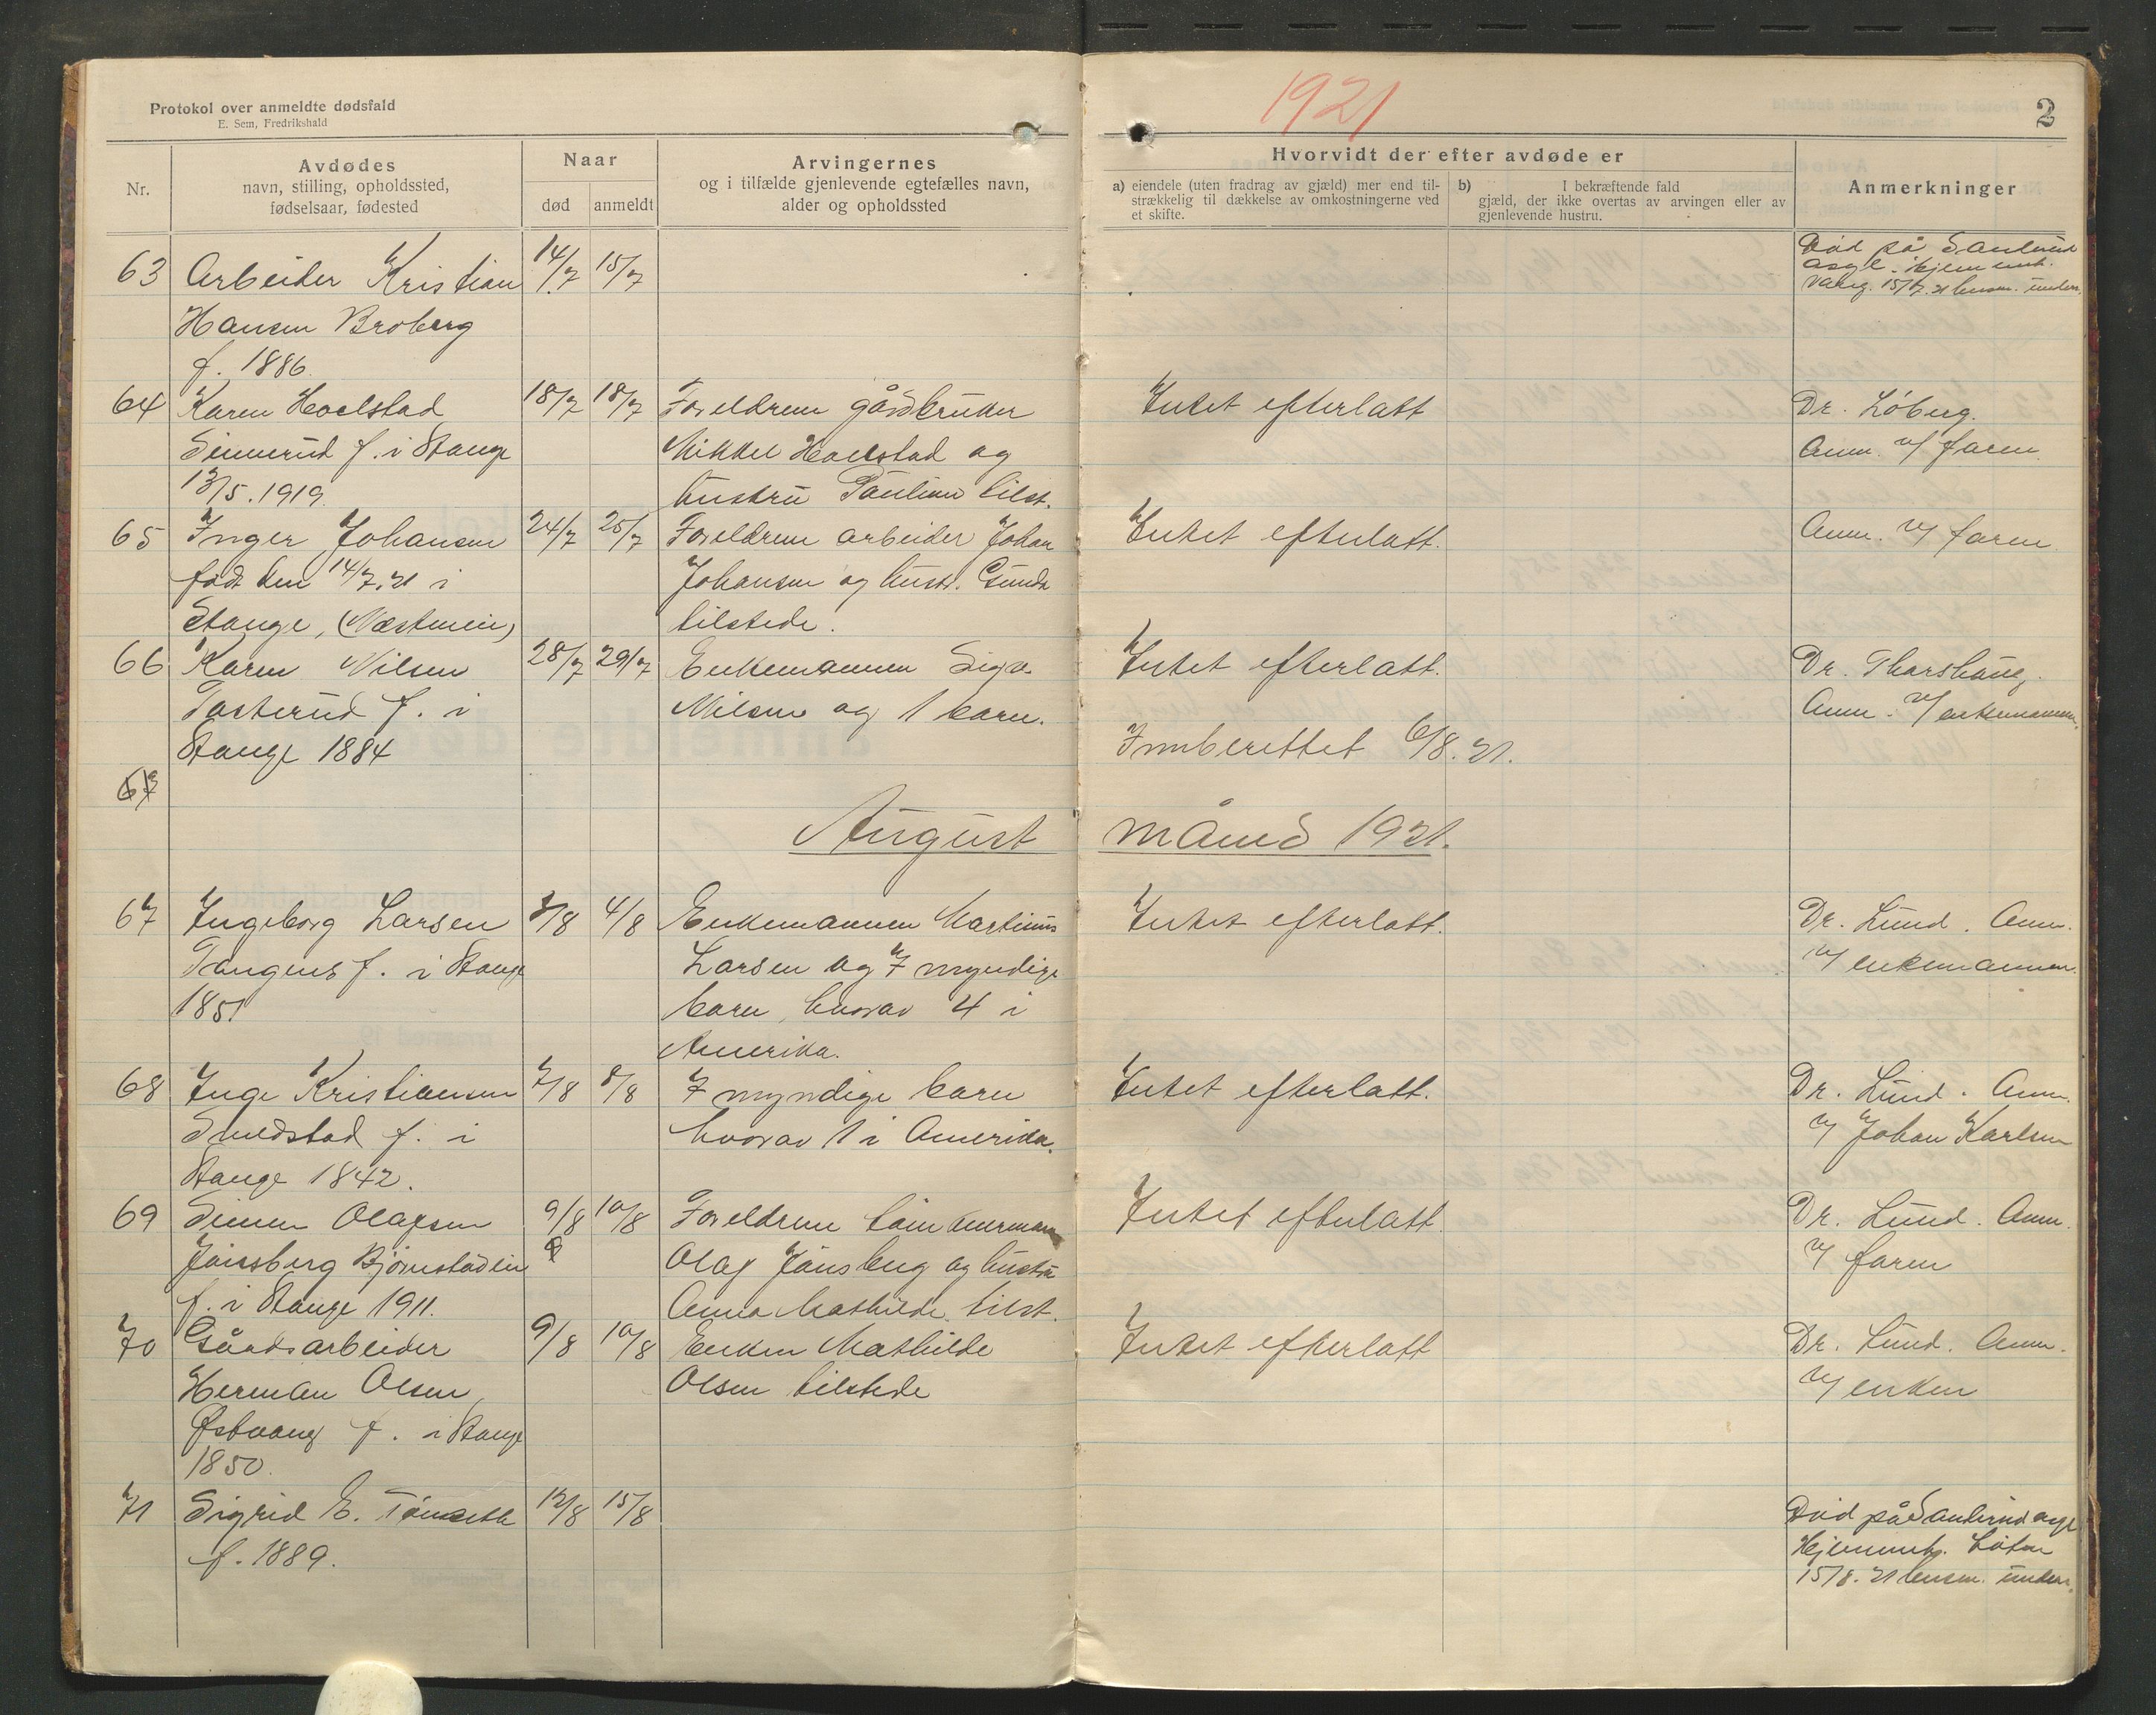 Protokol over anmeldte dødsfald
E. Sem, Fredrikshald
1921
2
Nr.
Avdødes
navn, stilling, opholdssted,
fødselsaar, fødested
Naar
død
anmeldt
Arvingernes
og i tilfælde gjenlevende egtefælles navn,
alder og opholdssted
Hvorvidt der efter avdøde er
a) eiendele (uten fradrag av gjæld) mer end til-
strækkelig til dækkelse av omkostningerne ved
et skifte.
b) I bekræftende fald
gjæld, der ikke overtas av arvingen eller av
gjenlevende hustru.
Anmerkninger
63 Arbeider Kristian 14/7 15/7
Hansen Broberg
f. 1886.
Død på Sanderud
asyl. hjemmh.
Vang. 15/7.21 lensm. underr.
64 Karen Hoelstad 18/7 18/7 Foreldrene gårdbruker Intet efterlatt Dr. Løberg.
f. i Stange Mikkel Hoelstad og Anm. v/ faren
13/5.1919. hustru Pauline tilst.
65 Inger Johansen 24/7 25/7 Foreldrene arbeider Johan Intet efterlatt. Anm. v/ faren.
født den 14/7.21 i Johansen og hustr. Gunda
Stange, tilstede.
66 Karen Nilsen 28/7 29/7 Enkemannen Intet efterlatt. Dr. Tharshaug.
f. i Nilsen og 1 barn. Anm. v/ enkemannen.
Stange 1884 Innberettet 6/8.21.
67
August måned 1921.
67 Ingeborg Larsen 3/8 4/8 Enkemannen Martinus Intet efterlatt. Dr. Lund. Anm.
Tangens f. i Stange Larsen og 7 myndige v/ enkemannen.
1851 barn, hvorav 4 i
Amerika.
68 Inge Kristiansen 7/8 8/8 7 myndige barn Intet efterlatt. Dr. Lund. Anm.
f. i hvorav 1 i Amerika. v/ Johan Karlsen
Stange 1842.
69 Olafsen 9/8 10/8 Foreldrene tømmermann Intet efterlatt. Dr. Lund. Anm.
Jønsberg f. i Stange 1911. Olaf Jønsberg og hustru v/ faren
Anna Mathilde tilst.
70 Gårdsarbeider 9/8 10/8 Enken Mathilde Intet efterlatt Dr. Lund. Anm.
Herman Olsen Olsen tilstede v/ enken
Østvang f. i Stange
1850.
71 Sigrid E. Tønseth 12/8 15/8 Død på Sanderud asyl
f. 1889. Hjemmh. Løten
15/8.21 lensm. underr.